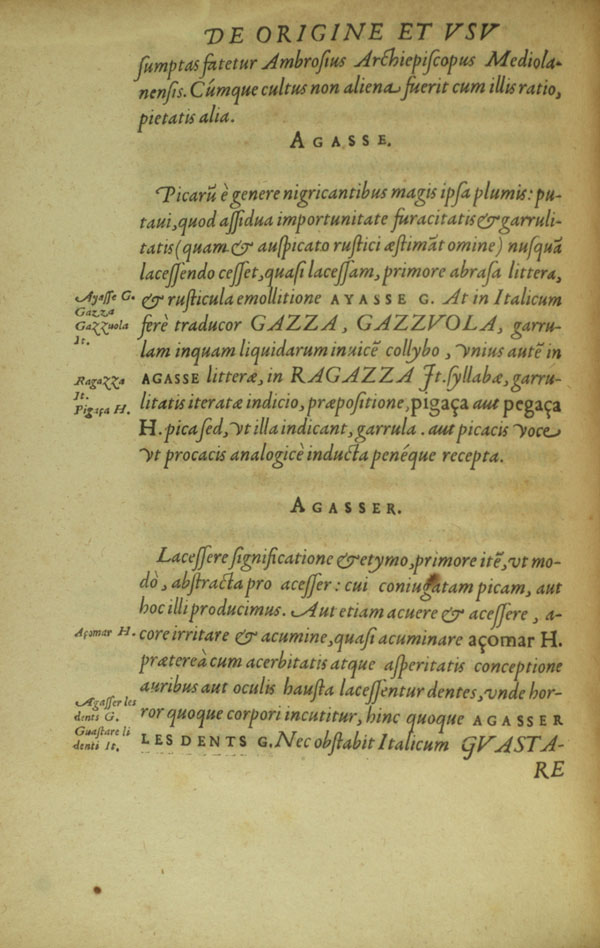 DE ORIGINE ET VSV
ſumptas fatetur Ambroſius Archiepiſcopus Mediola-
nenſis. Cúmque cultus non aliena fuerit cum illis ratio,
pietatis alia.
AGASSE.
Picarũ è genere nigricantibus magis ipſa plumis: pu-
taui, quod aſſidua importunitate furacitatis & garruli-
tatis (quam & auſpicato ruſtici æſtimãt omine) nuſquã
laceſſendo ceſſet, quaſi laceſſam, primore abraſa littera,
& ruſticula emollitione AYASSE G. At in Italicum
ferè traducor GAZZA, GAZZVOLA, garru-
lam inquam liquidarum inuicẽ collybo, vnius autẽ in
AGASSE litteræ, in RAGAZZA It. ſyllabæ, garru-
litatis iteratæ indicio, præpoſitione, pigaça aut pegaça
H. pica ſed, vt illa indicant, garrula. aut picacis voce
vt procacis analogicè inducta penéque recepta.
Ayaſſe G.
Gazza
Gazzuola
It.
Ragazza
It.
Pigaça H.
AGASSER.
Laceſſere ſignificatione & etymo, primore itẽ, vt mo-
dò, abſtracta pro aceſſer: cui coniugatam picam, aut
hoc illi producimus. Aut etiam acuere & aceſſere, a-
core irritare & acumine, quaſi acuminare açomar H.
prætereà cum acerbitatis atque aſperitatis conceptione
auribus aut oculis hauſta laceſſentur dentes, vnde hor-
ror quoque corpori incutitur, hinc quoque AGASSER
LES DENTS G. Nec obſtabit Italicum GVASTA-
RE
Açomar H.
Agaſſer les
dents G.
Guaſtare li
denti It.